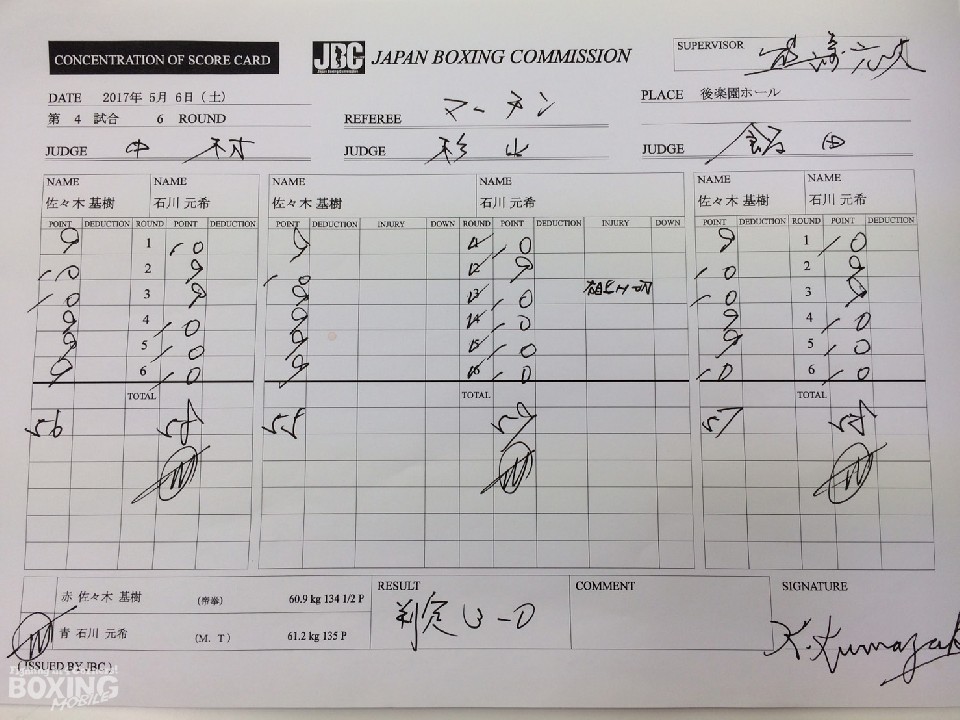 CONCENTRATION OF SCORE CARD
JBC JAPAN BOXING COMMISSION
SUPERVISOR
DATE 2017年 5月 6日（土）
REFEREE マーチン
PLACE 後楽園ホール
第 4 試合 6 ROUND
JUDGE 中村
JUDGE 杉山
JUDGE 飯田
NAME NAME NAME NAME NAME NAME
佐々木 基樹 石川 元希 佐々木 基樹 石川 元希 佐々木 基樹 石川 元希
POINT DEDUCTION ROUND POINT DEDUCTION POINT DEDUCTION INJURY DOWN ROUND POINT DEDUCTION INJURY DOWN POINT DEDUCTION ROUND POINT DEDUCTION
9 1 10 9 1 10 9 1 10
10 2 9 10 2 9 10 2 9
10 3 9 9 3 10 10 3 9
9 4 10 9 4 10 9 4 10
9 5 10 9 5 10 9 5 10
9 6 10 9 6 10 10 6 10
TOTAL TOTAL TOTAL
56 58 59 57 58
赤 佐々木 基樹 (帝拳) 60.9 kg 134 1/2 P
青 石川 元希 (M. T) 61.2 kg 135 P
RESULT
判定 3-0
COMMENT
SIGNATURE
K. Kumazak
( ISSUED BY JBC )
BOXING
MOBILE